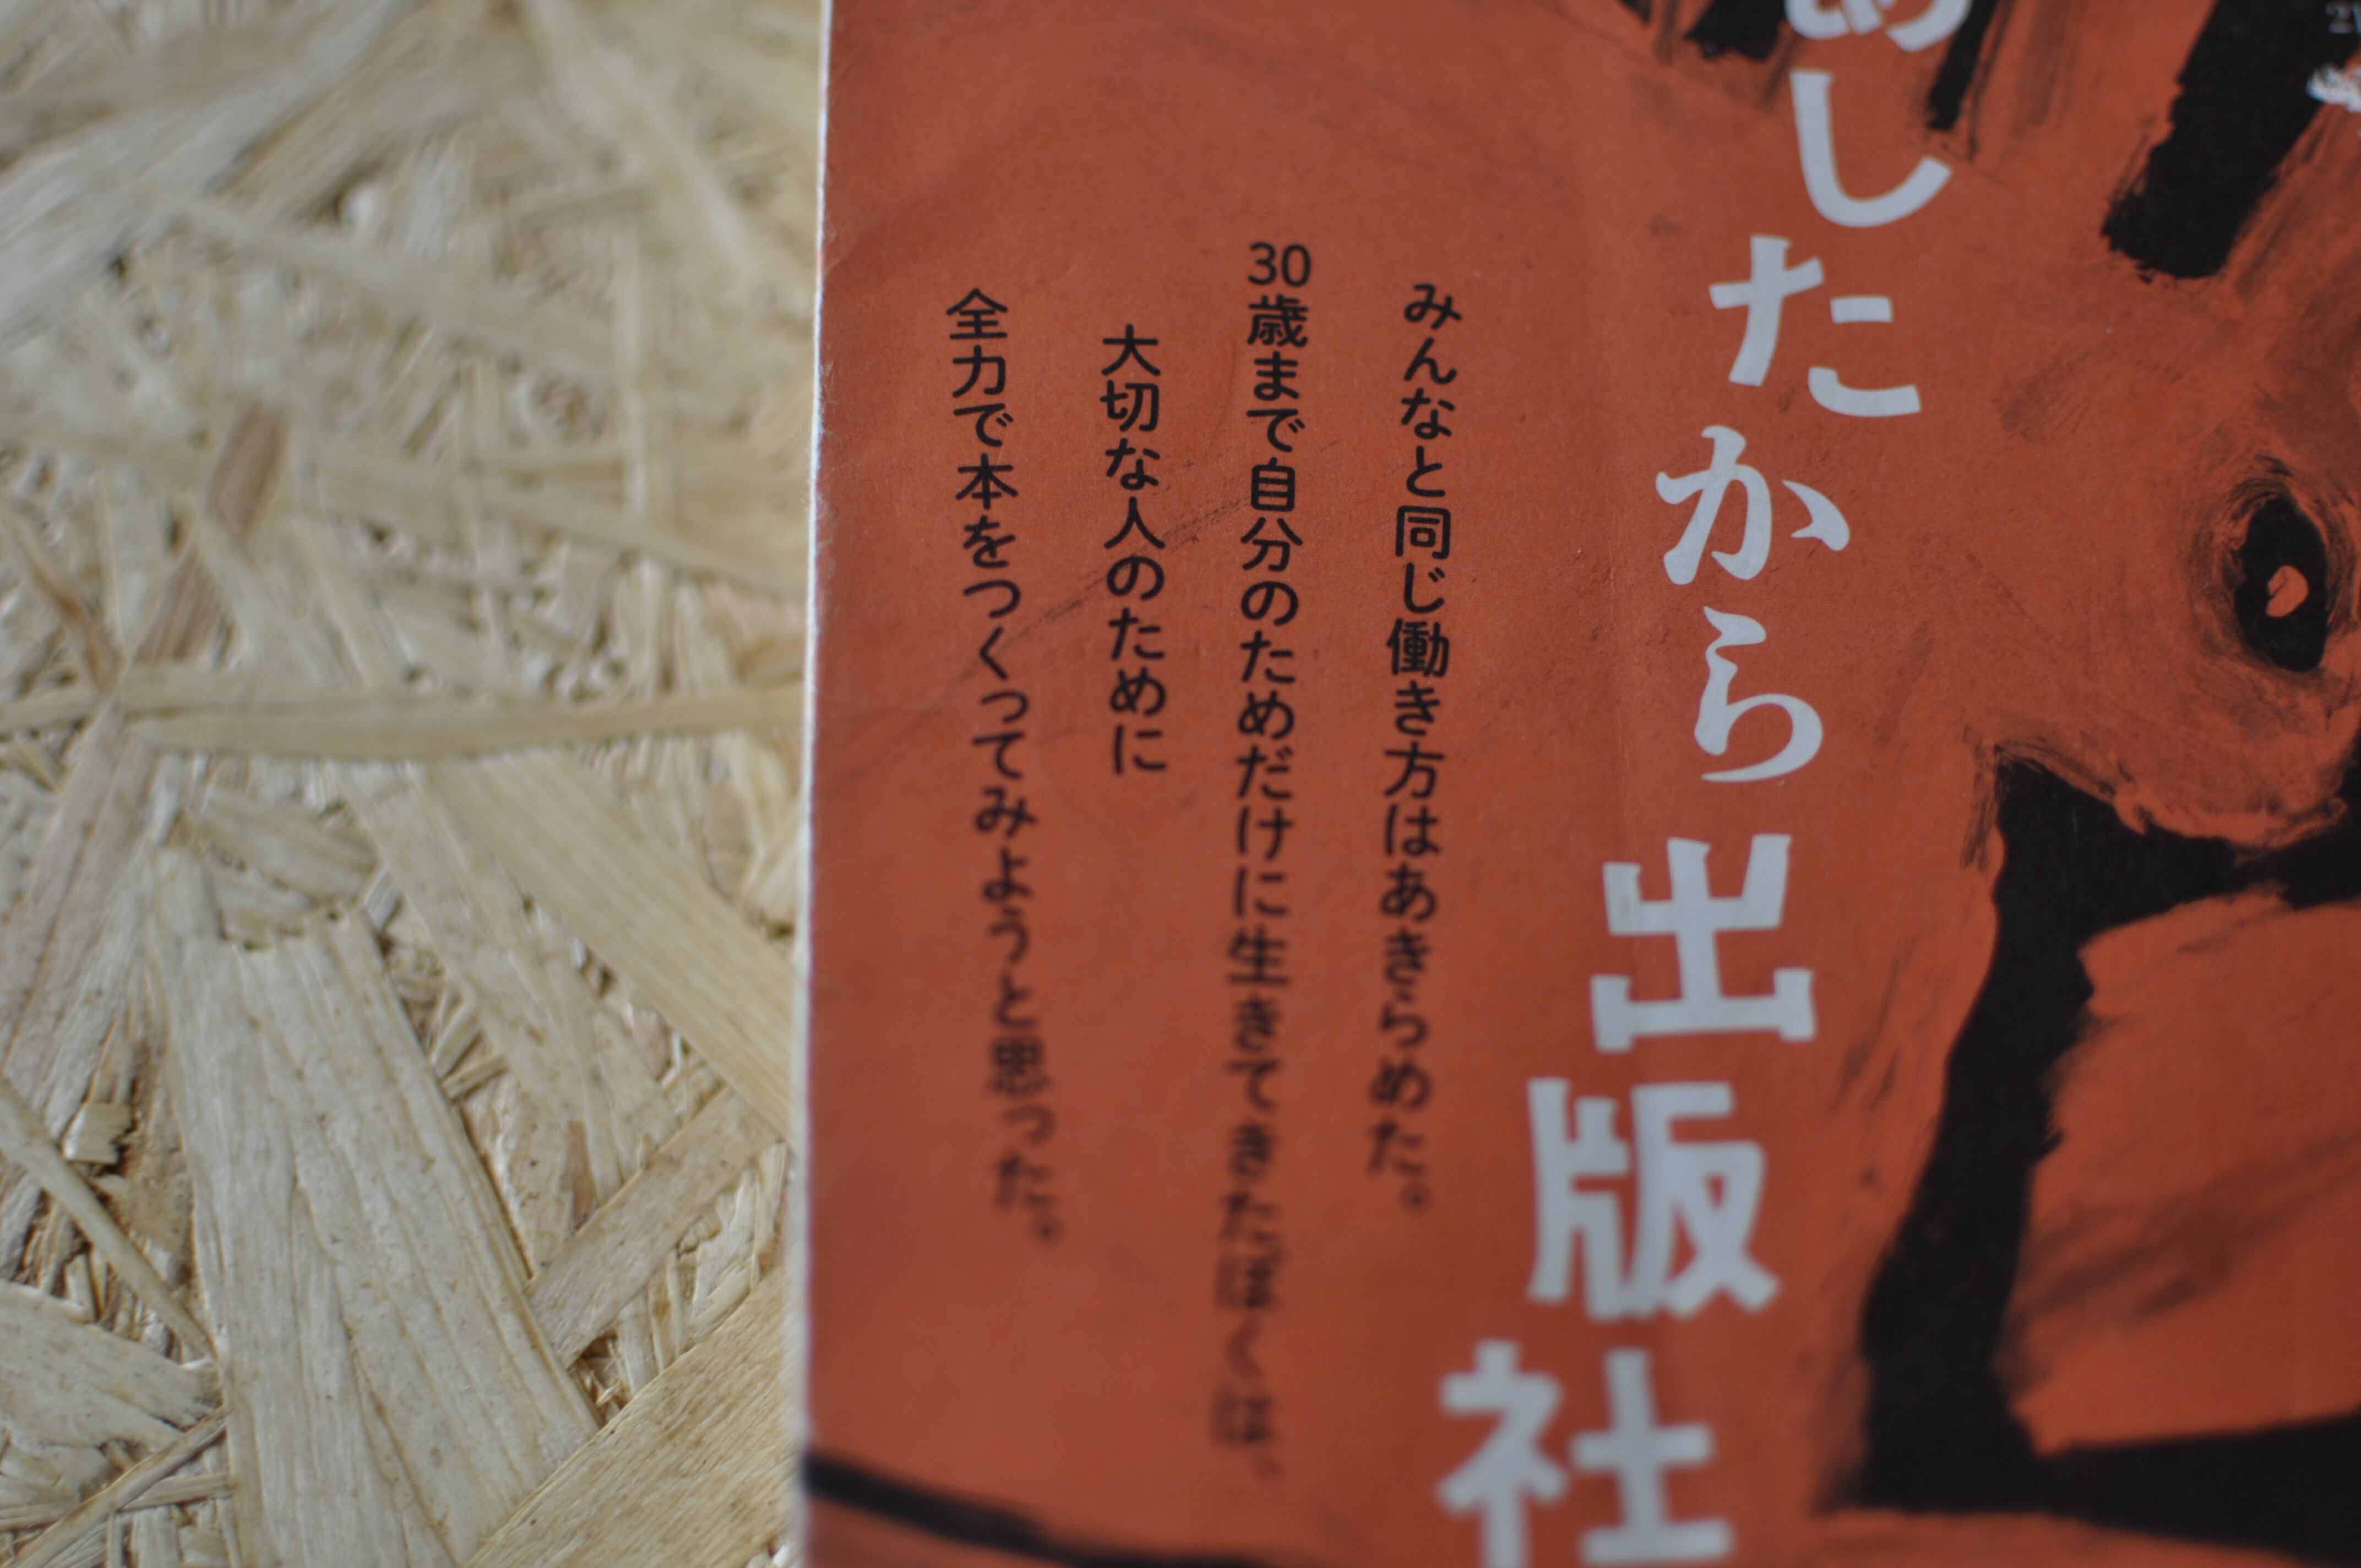 あしたから出版社
みんなと同じ働き方はあきらめた。
30歳まで自分のためだけに生きてきたぼくは、
大切な人のために
全力で本をつくってみようと思った。